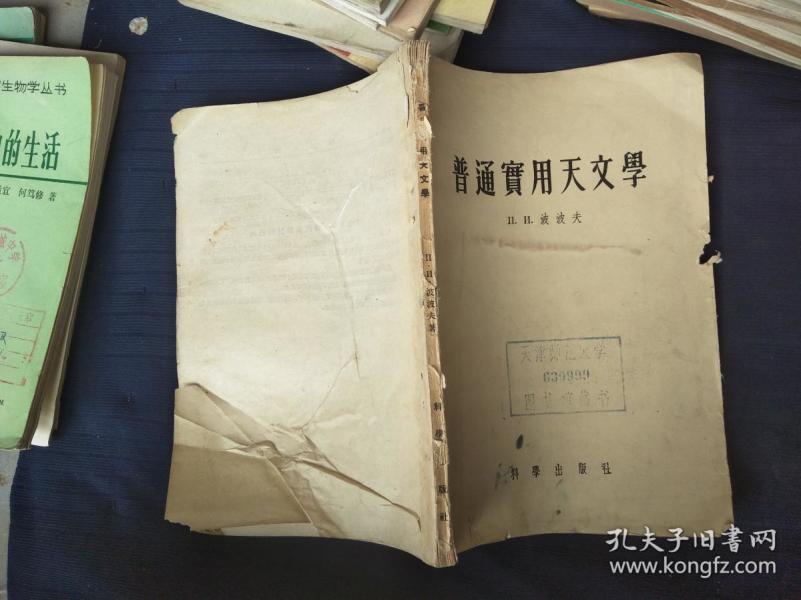 生物学丛书
的生活
宜 何笃修 著
用天文學
П.И.波波夫著
科學
版社
普通實用天文學
П. И. 波波夫
天津師范大学
630999
图书馆藏书
科學出版社
孔夫子旧书网
www.kongfz.com